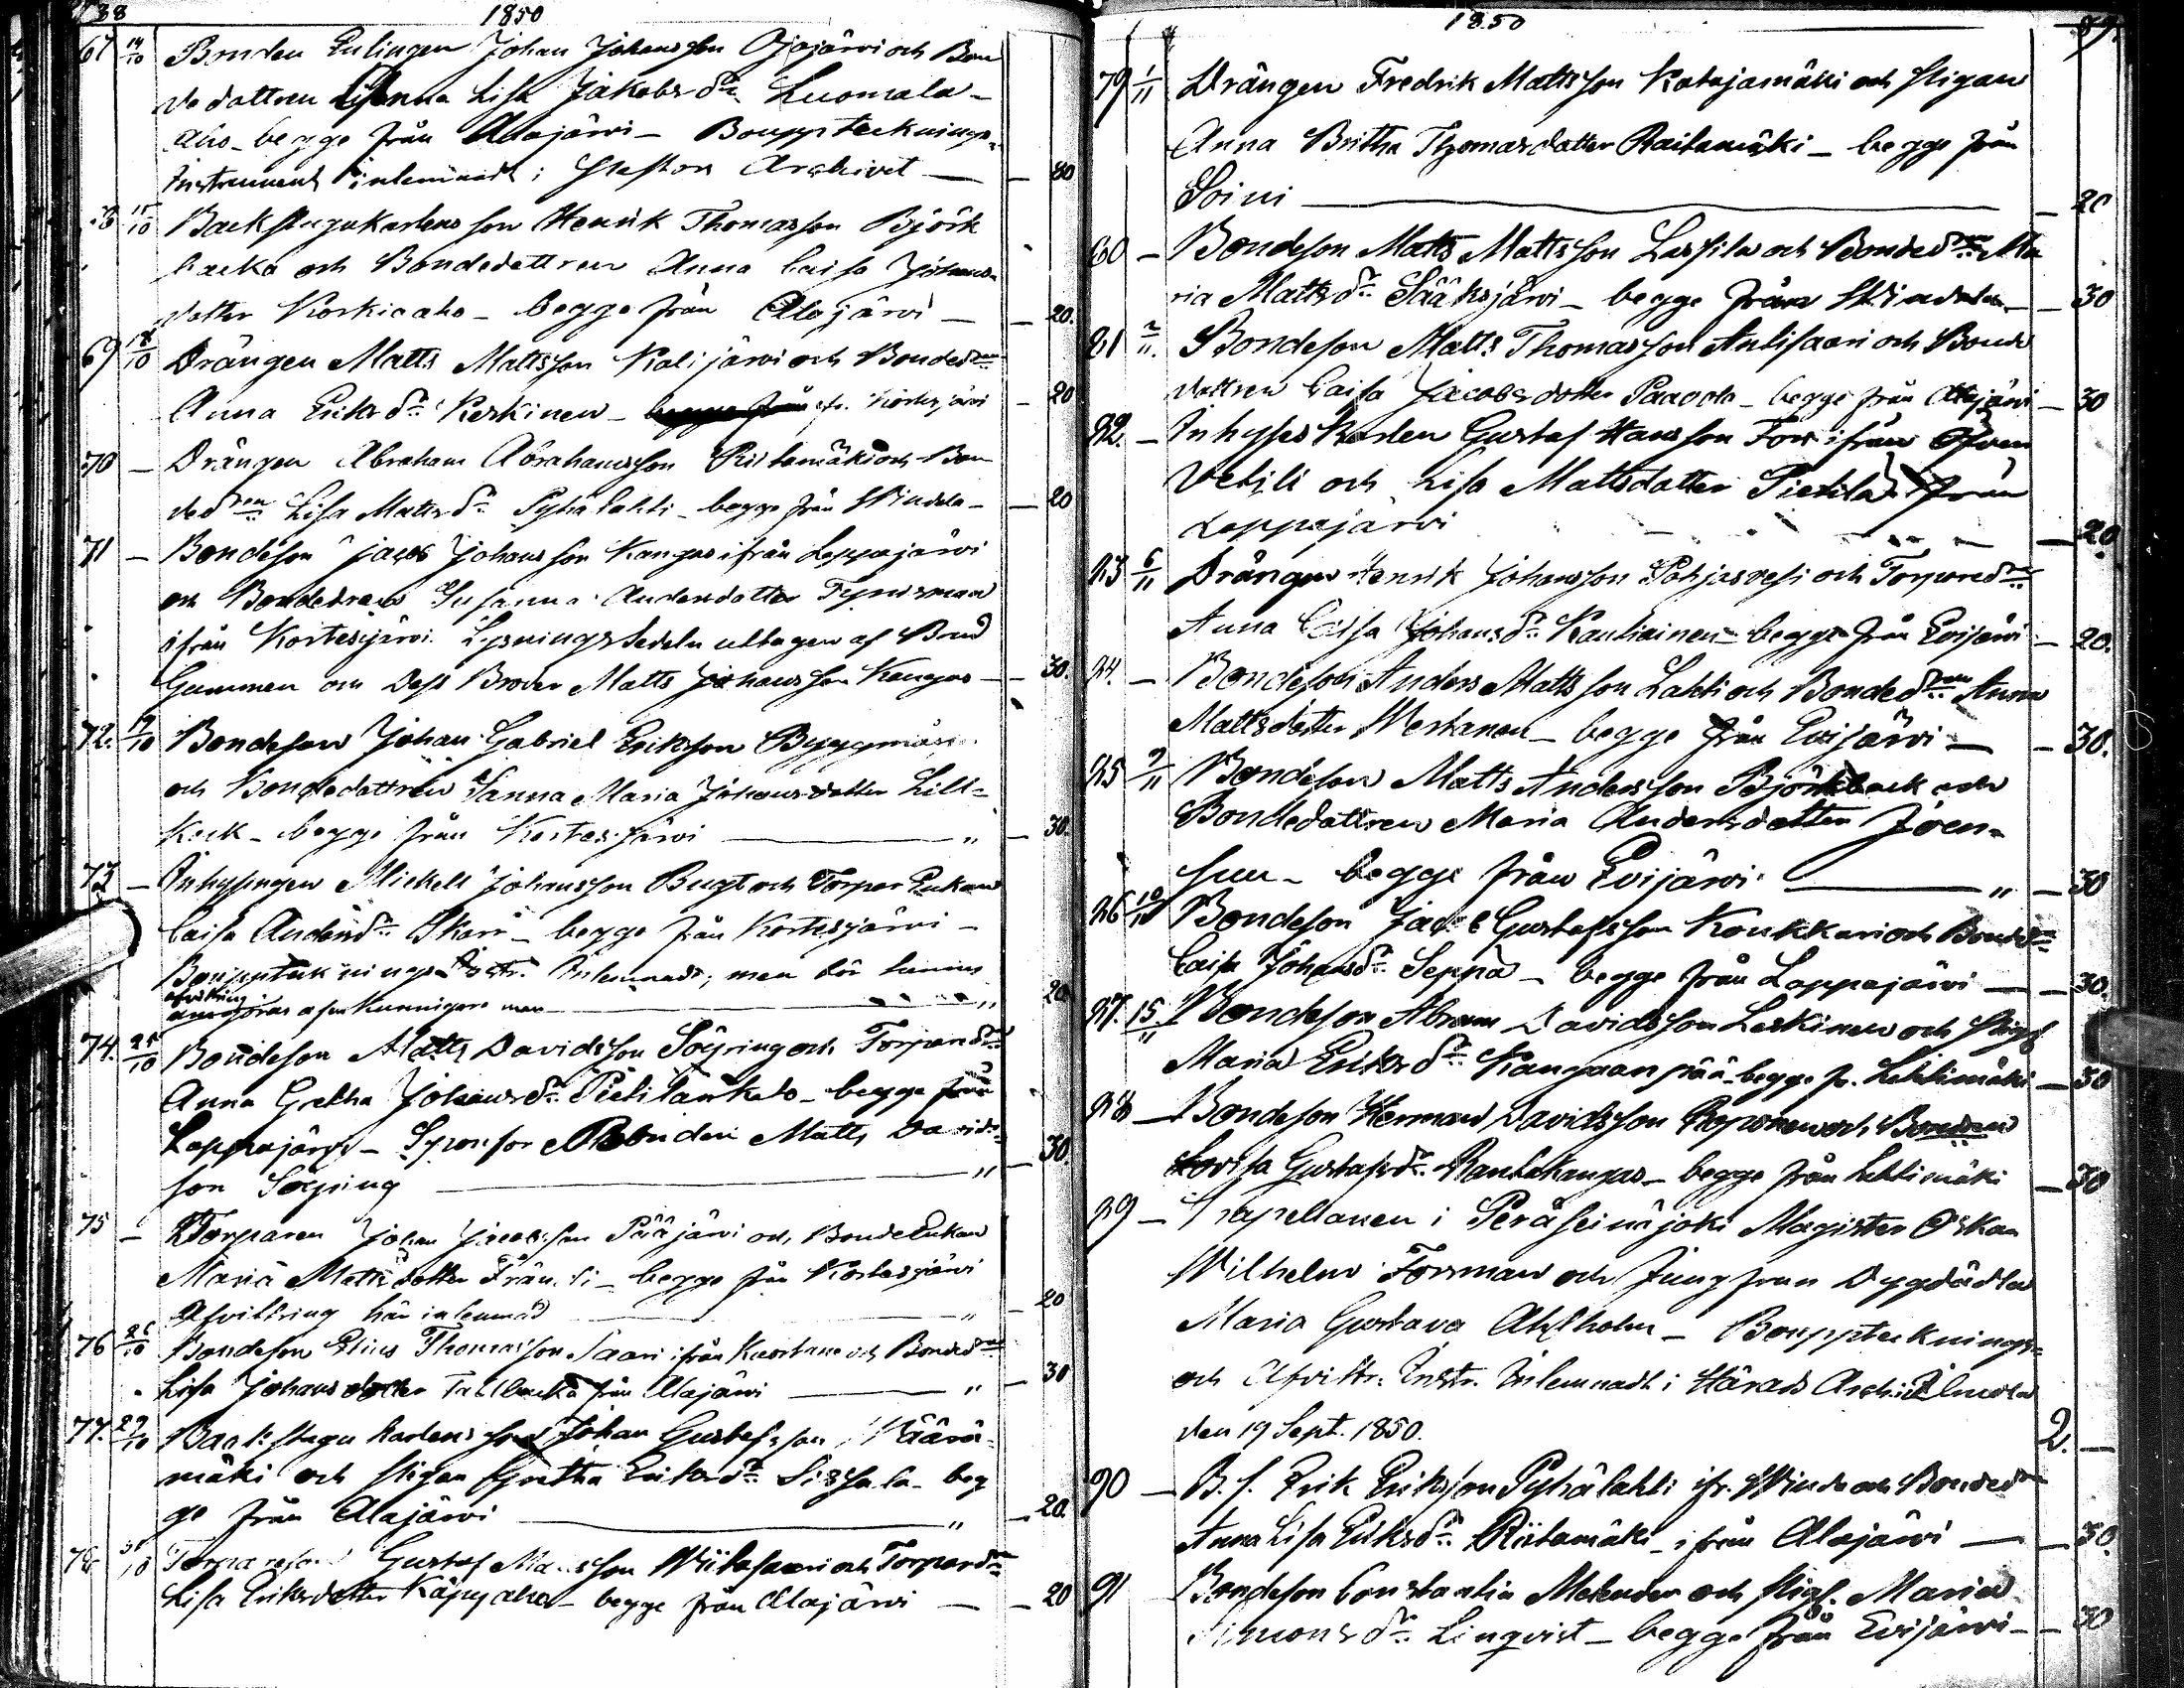 38
1850
67 14/10 Bonden Enlingen Johan Johansson Ojajärvi och Bon
dedottren Sanna Lisa Jakobsdr Luomala-
aho - begge från Alajärvi - Bouppteknings-
Instrument inlemnadt i Archivet — 80
68 15/10 Backstugukarlens son Henrik Thomasson Björk
backa och Bondedottren Anna Caisa Johans
dotter Korkiaaho - begge från Alajärvi — 20.
69 18/10 Drängen Matts Mattsson Kalijärvi och Bondedren
Anna Eriksdr Kerkinen - fr. Kortesjärvi — 20
70 — Drängen Abraham Abrahamsson Riitamäki och Bon
dedren Lisa Mattsdr Pyhälahti - begge från Windala — 20
71 — Bondeson Jacob Johansson Kangas ifrån Lappajärvi
och Bondedren Susanna Andersdotter Tynisman
ifrån Kortesjärvi. Lysningssedeln uttagen af Brud
Gummen och Dess Broder Matts Johansson Kangas — 30.
72. 19/10 Bondeson Johan Gabriel Eriksson Byggmäs
och Bondedottren Sanna Maria Johansdotter Lill-
Kack - begge från Kortesjärvi — " — 30.
73 — Inhysingen Mickell Johansson Bugt och Torpar Enkan
Caisa Andersdr Skarr - begge från Kortesjärvi -
Bouppteknings Instr. Inlemnadt; men bör
afvittring
göras af Kunnigare män — " 20
74. 25/10 Bondeson Matts Davidsson Söyring och Torparedren
Anna Gretha Johansdr Pietilänkato - begge från
Lappajärvi - Sponsor Bonden Matts Davids-
son Söyring — " — 30.
75 — Torparen Johan Jacobsson Pääjärvi och Bonde Enkan
Maria Mattsdotter Fränti - begge från Kortesjärvi
Afvittring här inlemnad — " — 20
76 26/10 Bondeson Elias Thomasson Saari ifrån Kuortane och Bondedren
Lisa Johansdotter Tallbacka från Alajärvi — " — 30
77. 29/10 Backstugu karlens son Johan Gustafsson Määrä-
mäki och pigan Gretha Eriksdr Sissala - beg
ge från Alajärvi — " — 20.
78 31/10 Torpareson Gustaf Mattsson Wiitasaari och Torparedren
Lisa Eriksdotter Käpyaho - begge från Alajärvi — 20
1850
39.
79 1/11 Drängen Fredrik Mattsson Katajamäki och pigan
Anna Britha Thomasdotter Raitamäki - begge från
Soini — 20
80 — Bondeson Matts Mattsson Lassila och Bondedren Ma
ria Mattsdr Sääksjärvi - begge från Windala — 30
81 2/11. Bondeson Matts Thomasson Antisaari och Bonde
dottren Caisa Jacobsdotter Paavola - begge från Alajärvi — 30
82. — Inhyses Karlen Gustaf Hansson Fors ifrån Öfver
Vetili och Lisa Mattsdotter Pietilä ifrån
Lappajärvi — 20
83 6/11 Drängen Henrik Johansson Pohjasvesi och Torparedren
Anna Caisa Johansdr Kauhainen - begge från Evijärvi — 20.
84. — Bondeson Anders Mattsson Lahti och Bondedren Anna
Mattsdotter Wertanen - begge från Evijärvi — 30.
85 9/11 Bondeson Matts Andersson Björkback och
Bondedottren Maria Andersdotter Joen-
suu - begge från Evijärvi — " — 30
86 10/11 Bondeson Jacob Gustafsson Konkkari och Bondedren
Caisa Johansdr Seppä - begge från Lappajärvi — 30.
87. 15/11 Bondeson Abram Davidsson Leskinen och pig.
Maria Eriksdr Kangaanpää - begge fr. Lehtimäki — 30
88 — Bondeson Herman Davidsson Roponen och Bondedren
Lovisa Gustafsdr Rantakangas - begge från Lehtimäki — 30
89 — Capellanen i Peräseinäjoki Magister Oskar
Wilhelm Forsman och Jungfrun Dygdädla
Maria Gustava Ahlholm - Bouppteknings-
och Afvittr. Instr. Inlemnadt i Härads Archiv
den 19 Sept. 1850. 2. —
90 — B. s. Erik Eriksson Pyhälahti ifr. Windala och Bondedren
Anna Lisa Eriksdr Riitamäki - ifrån Alajärvi — 30.
91 Bondeson Constantin Melender och pig. Maria
Simonsdr Linqvist - begge från Evijärvi — 30